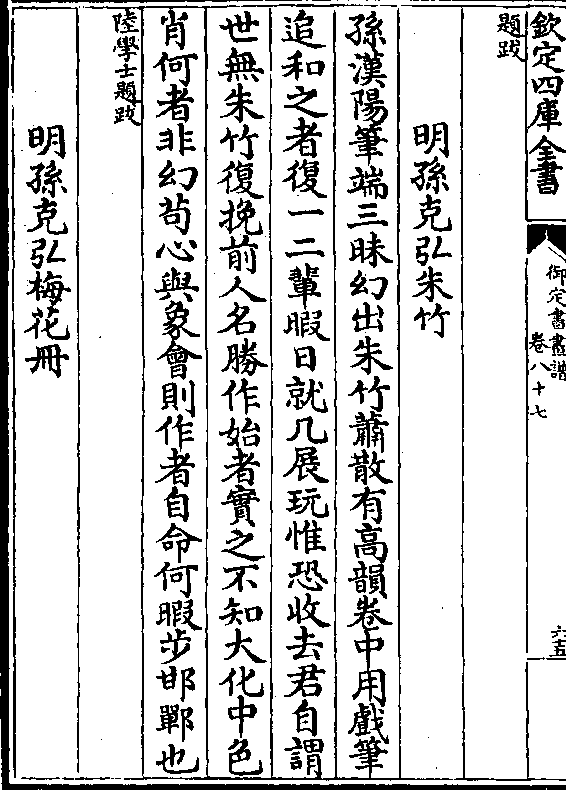 欽定四庫全書
御定書畫譜
卷八十七
六五
題跋
明孫克弘朱竹
孫漢陽筆端三昧幻出朱竹蕭散有高韻卷中用戲筆
追和之者復一二輩暇日就几展玩惟恐收去君自謂
世無朱竹復挽前人名勝作始者實之不知大化中色
肖何者非幻苟心與象會則作者自命何暇步邯鄲也
陸學士題跋
明孫克弘梅花冊